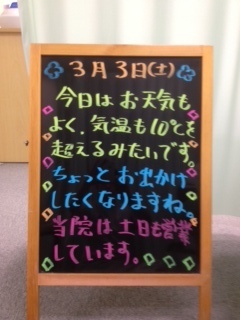 3月3日(土)
今日はお天気も
よく、気温も10℃を
超えるみたいです。
ちょっとお出かけ
したくなりますね。
当院は土日も営業
しています。